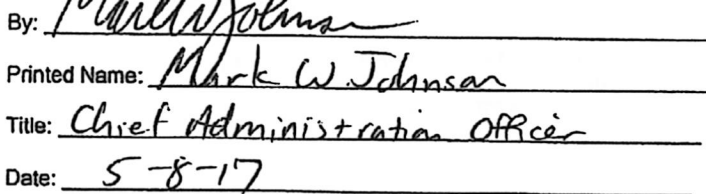 By: Mark W Johnson
Printed Name: Mark W Johnson
Title: Chief Administration Officer
Date: 5-8-17